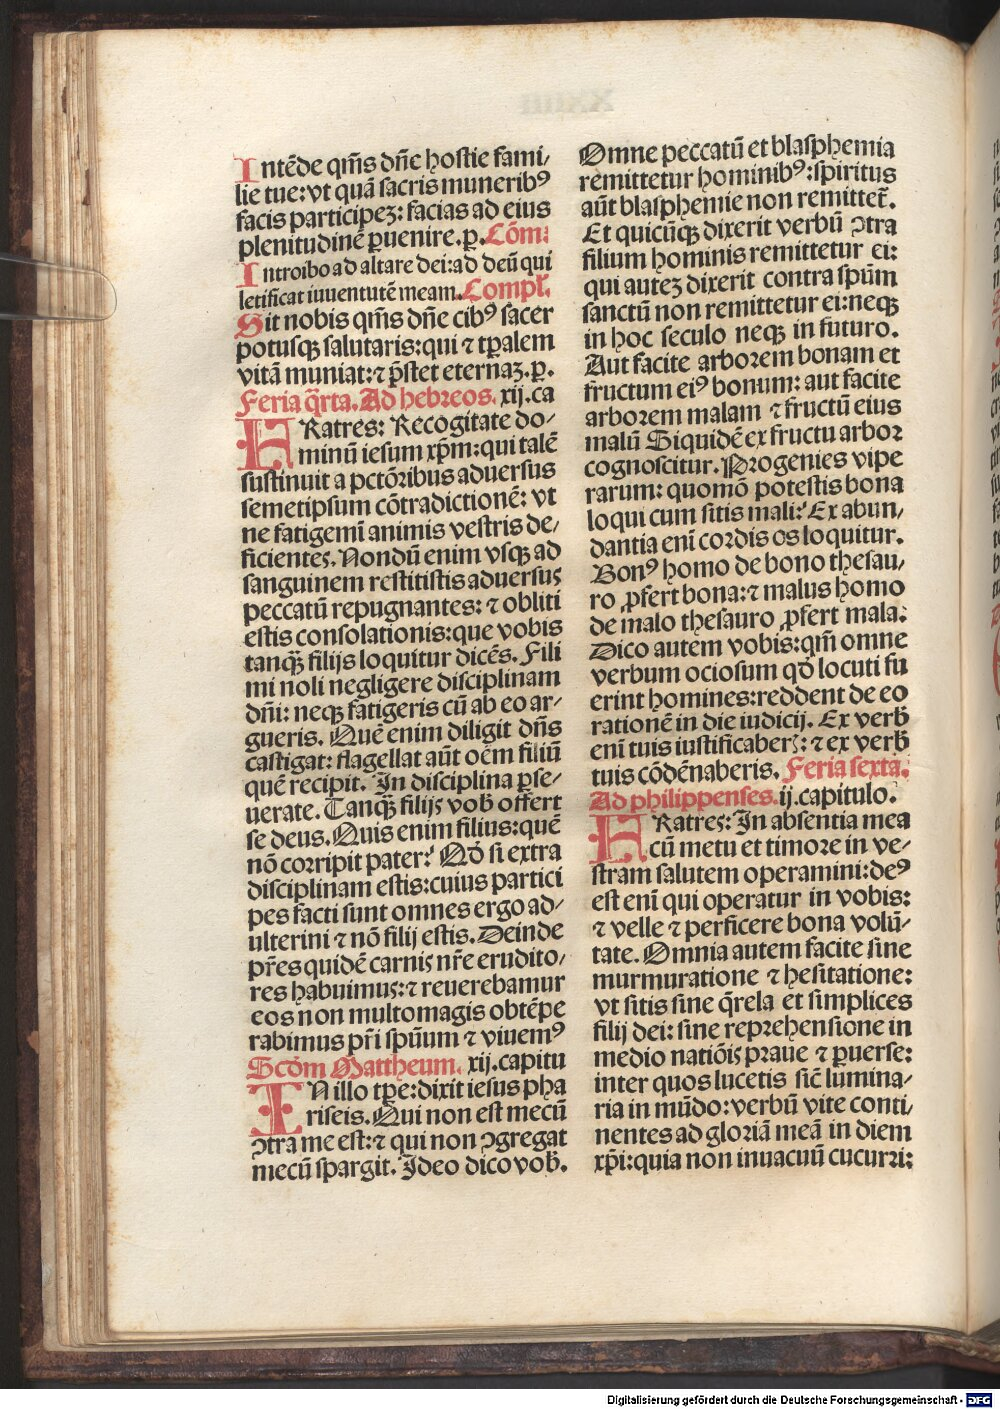 Intēde qm̄s dn̄e hostie fami⸗
lie tue: vt quā sacris muneribꝰ
facis participeʒ: facias ad eius
plenitudinē ꝑuenire. p. Cōm:
Introibo ad altare dei: ad deū qui
letificat iuuentutē meam. Compl̄.
Sit nobis qm̄s dn̄e cibꝰ sacer
potusqꝫ salutaris: qui ⁊ tꝑalem
vitā muniat: ⁊ p̄stet eternaʒ. p.
Feria q̄rta. Ad hebreos. xij. ca
FRatres: Recogitate do⸗
minū iesum xp̄m: qui talē
sustinuit a pctōribus aduersus
semetipsum cōtradictionē: vt
ne fatigemī animis vestris de⸗
ficientes. Nondū enim vsqꝫ ad
sanguinem restitistis aduersus
peccatū repugnantes: ⁊ obliti
estis consolationis: que vobis
tanqꝫ̄ filijs loquitur dicēs. Fili
mi noli negligere disciplinam
dn̄i: neqꝫ fatigeris cū ab eo ar⸗
gueris. Quē enim diligit dn̄s
castigat: flagellat aūt oēm filiū
quē recipit. In disciplina ꝑse⸗
uerate. Tanqꝫ̄ filijs vob̄ offert
se deus. Quis enim filius: quē
nō corripit pater? Qd̄ si extra
disciplinam estis: cuius partici
pes facti sunt omnes ergo ad⸗
ulterini ⁊ nō filij estis. Deinde
pr̄es quidē carnis nr̄e erudito⸗
res habuimus: ⁊ reuerebamur
eos non multomagis obtēpe
rabimus pr̄i spūum ⁊ viuemꝰ
Scdm̄ Mattheum. xij. capitu
IN illo tꝑe: dixit iesus pha
riseis. Qui non est mecū
ꝯtra me est: ⁊ qui non ꝯgregat
mecū spargit. Ideo dico vob̄.
Omne peccatū et blasphemia
remittetur hominibꝰ: spiritus
aūt blasphemie non remittet̄.
Et quicūqꝫ dixerit verbū ꝯtra
filium hominis remittetur ei:
qui auteʒ dixerit contra spūm
sanctū non remittetur ei: neqꝫ
in hoc seculo neqꝫ in futuro.
Aut facite arborem bonam et
fructum eiꝰ bonum: aut facite
arborem malam ⁊ fructū eius
malū Siquidē ex fructu arbor
cognoscitur. Progenies vipe
rarum: quomō potestis bona
loqui cum sitis mali? Ex abun⸗
dantia enī cordis os loquitur.
Bonꝰ homo de bono thesau⸗
ro ꝓfert bona: ⁊ malus homo
de malo thesauro ꝓfert mala.
Dico autem vobis: qm̄ omne
verbum ociosum qd̄ locuti fu
erint homines: reddent de eo
rationē in die iudicij. Ex verb̄
enī tuis iustificaberꝭ: ⁊ ex verb̄
tuis cōdēnaberis. Feria sexta.
Ad philippenses. ij. capitulo.
FRatres: In absentia mea
cū metu et timore in ve⸗
stram salutem operamini: deꝰ
est enī qui operatur in vobis:
⁊ velle ⁊ perficere bona volū⸗
tate. Omnia autem facite sine
murmuratione ⁊ hesitatione:
vt sitis sine q̄rela et simplices
filij dei: sine reprehensione in
medio natiōis praue ⁊ ꝑuerse:
inter quos lucetis sic̄ lumina⸗
ria in mūdo: verbū vite conti⸗
nentes ad gloriā meā in diem
xp̄i: quia non inuacuū cucurri:
Digitalisierung gefördert durch die Deutsche Forschungsgemeinschaft - DFG